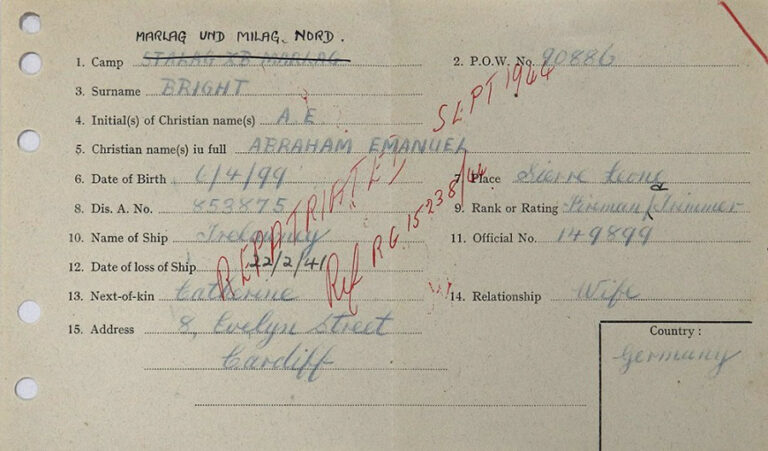 MARLAG UND MILAG NORD.
1. Camp STALAG XB MARLAG 2. P.O.W. No. 90886
3. Surname BRIGHT
4. Initial(s) of Christian name(s) A.E.
5. Christian name(s) in full ABRAHAM EMANUEL
6. Date of Birth 6/4/99 7. Place Sierre Leone
8. Dis. A. No. 853875 9. Rank or Rating Fireman & Trimmer
10. Name of Ship Trelawney 11. Official No. 149899
12. Date of loss of Ship 22/2/41
13. Next-of-kin Catherine 14. Relationship Wife
15. Address 8, Evelyn Street
Cardiff
Country:
Germany
REPATRIATED SEPT 1944
Ref RG 15238/44